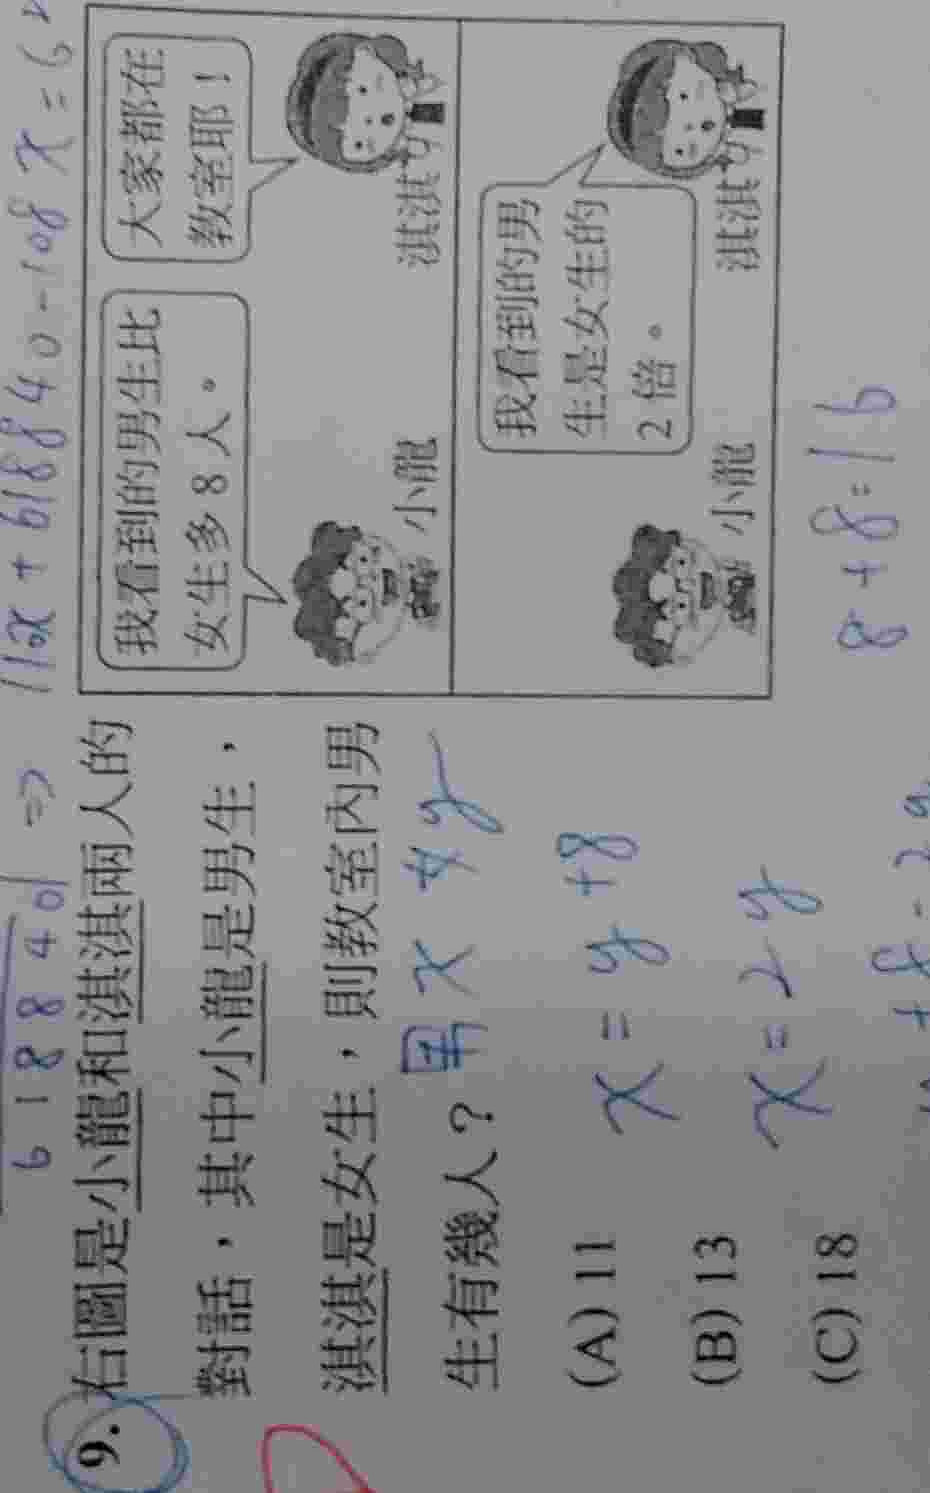 11x + 618840 - 108x = 6
618840 ⇒
9. 右圖是小龍和淇淇兩人的
對話，其中小龍是男生，
淇淇是女生，則教室內男
生有幾人？
男 x 女 y
(A) 11
x = y + 8
(B) 13
x = 2y
(C) 18
我看到的男生比
女生多 8 人。
大家都在
教室耶！
小龍
淇淇
我看到的男
生是女生的
2 倍。
小龍
淇淇
8 + 8 = 16